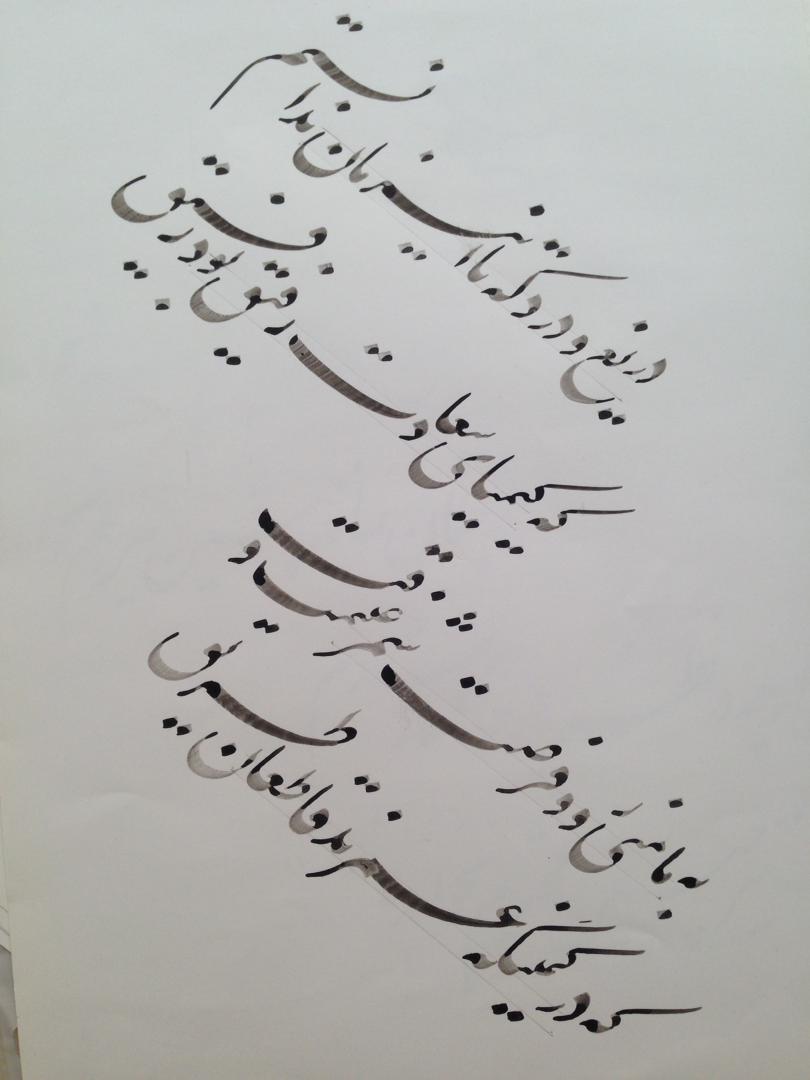 دریغ و درد که تا این زمان ندانستم
که کیمیای سعادت رفیق بود رفیق
به مامنی رو و فرصت شمر غنیمت وقت
که در کمینگه عمرند قاطعان طریق